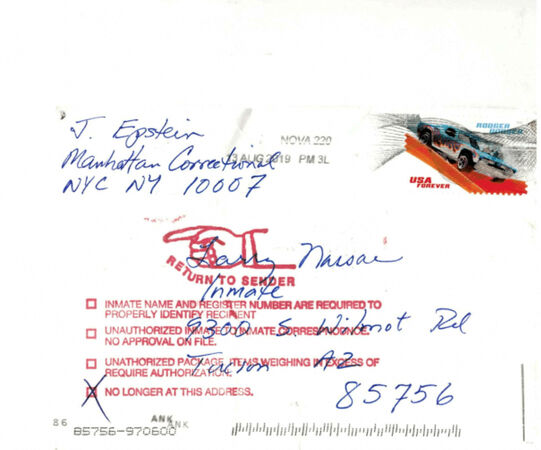 J. Epstein
Manhattan Correctional
NYC NY 10007
NOVA 220
13 AUG 2019 PM 3L
RODGER
USA
FOREVER
RETURN TO SENDER
Larry Nassar
Inmate
9300 S. Wilmot Rd
Tucson AZ
85756
☐ INMATE NAME AND REGISTER NUMBER ARE REQUIRED TO
PROPERLY IDENTIFY RECIPIENT
☐ UNAUTHORIZED INMATE TO INMATE CORRESPONDENCE.
NO APPROVAL ON FILE.
☐ UNAUTHORIZED PACKAGE, ITEMS WEIGHING IN EXCESS OF
REQUIRE AUTHORIZATION.
☒ NO LONGER AT THIS ADDRESS.
86
ANK
ANK
85756-970600